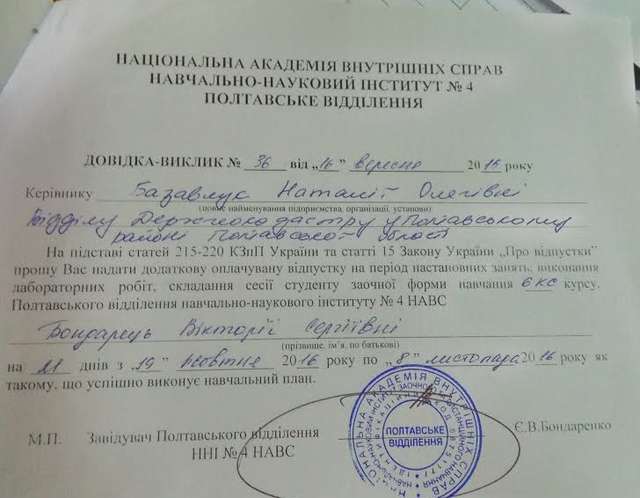 НАЦІОНАЛЬНА АКАДЕМІЯ ВНУТРІШНІХ СПРАВ
НАВЧАЛЬНО-НАУКОВИЙ ІНСТИТУТ № 4
ПОЛТАВСЬКЕ ВІДДІЛЕННЯ
ДОВІДКА-ВИКЛИК № 36 від „16” вересня 2016 року
Керівнику Базавлук Наталії Олегівні
(повне найменування підприємства, організації, установи)
Відділу Держгеокадастру у Полтавському
районі Полтавської області
На підставі статей 215-220 КЗпП України та статті 15 Закону України „Про відпустки”
прошу Вас надати додаткову оплачувану відпустку на період настановних занять, виконання
лабораторних робіт, складання сесії студенту заочної форми навчання 6 кс курсу,
Полтавського відділення навчально-наукового інституту № 4 НАВС
Бондарець Вікторії Сергіївні
(прізвище, ім’я, по батькові)
на 21 днів з „19” жовтня 2016 року по „8” листопада 2016 року як
такому, що успішно виконує навчальний план.
М.П. Завідувач Полтавського відділення Є.В.Бондаренко
ННІ № 4 НАВС
ПОЛТАВСЬКЕ
ВІДДІЛЕННЯ
НАЦІОНАЛЬНА АКАДЕМІЯ ВНУТРІШНІХ СПРАВ